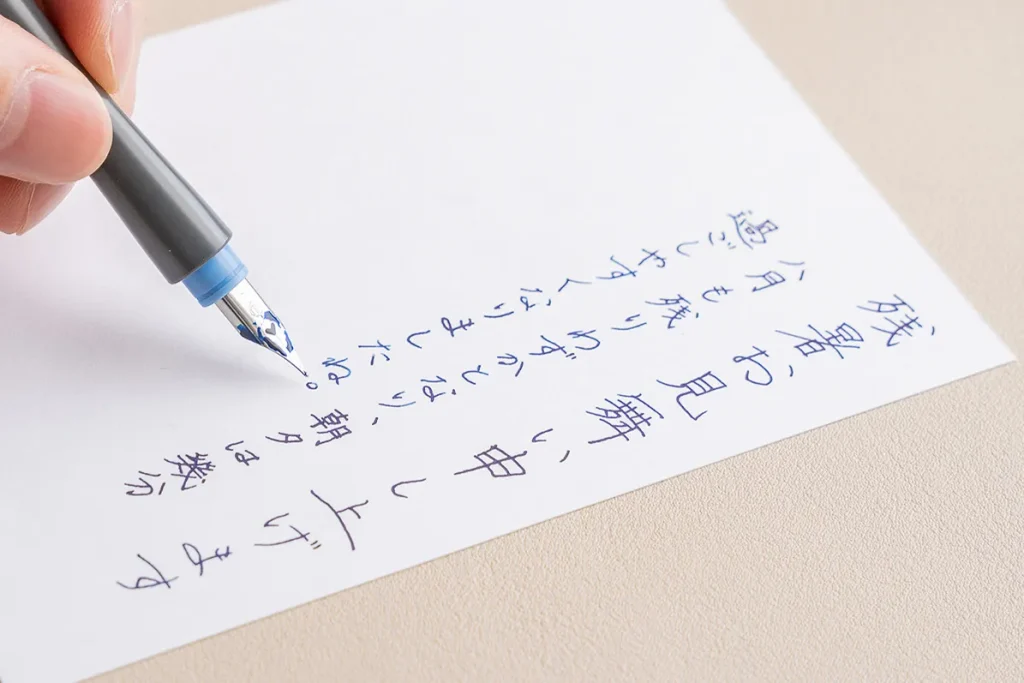 残暑お見舞い申し上げます
八月も残りわずかとなり、朝夕は幾分
過ごしやすくなりましたね。